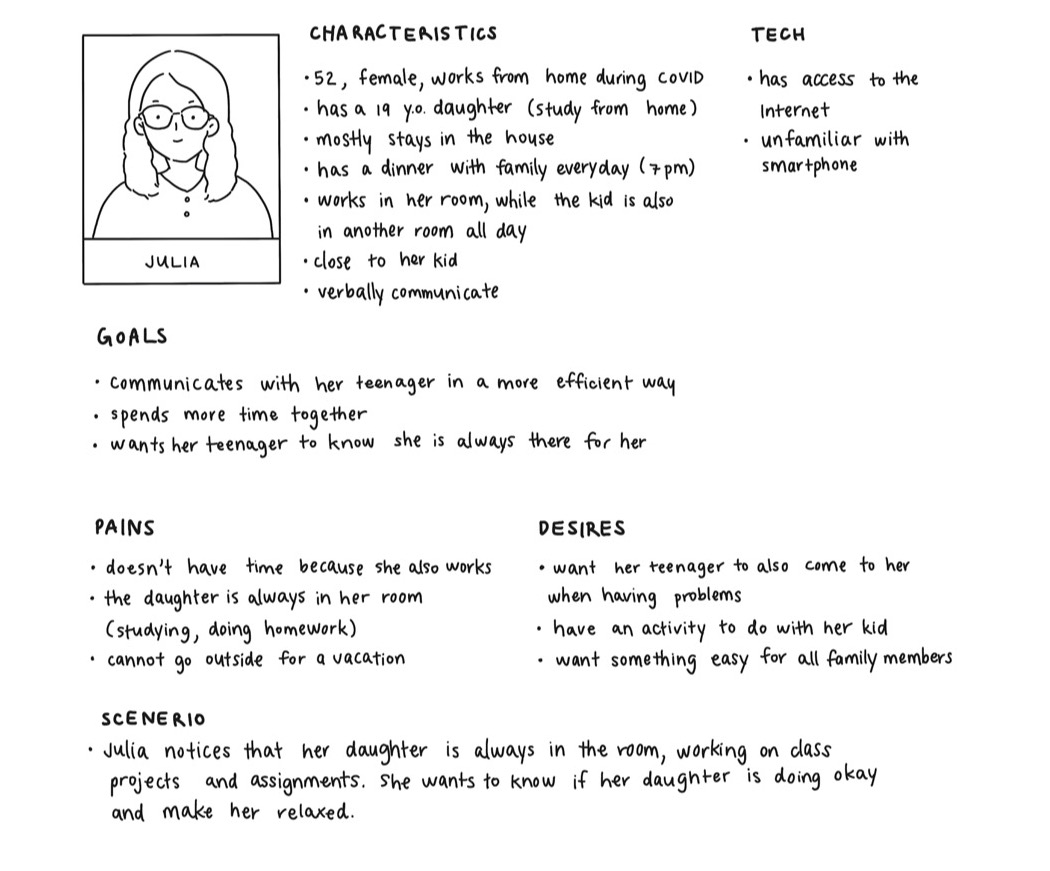 CHARACTERISTICS
• 52, female, works from home during COVID
• has a 19 y.o. daughter (study from home)
• mostly stays in the house
• has a dinner with family everyday (7pm)
• works in her room, while the kid is also
in another room all day
• close to her kid
• verbally communicate
TECH
• has access to the
Internet
• unfamiliar with
smartphone
JULIA
GOALS
• communicates with her teenager in a more efficient way
• spends more time together
• wants her teenager to know she is always there for her
PAINS
• doesn't have time because she also works
• the daughter is always in her room
(studying, doing homework)
• cannot go outside for a vacation
DESIRES
• want her teenager to also come to her
when having problems
• have an activity to do with her kid
• want something easy for all family members
SCENERIO
• Julia notices that her daughter is always in the room, working on class
projects and assignments. She wants to know if her daughter is doing okay
and make her relaxed.